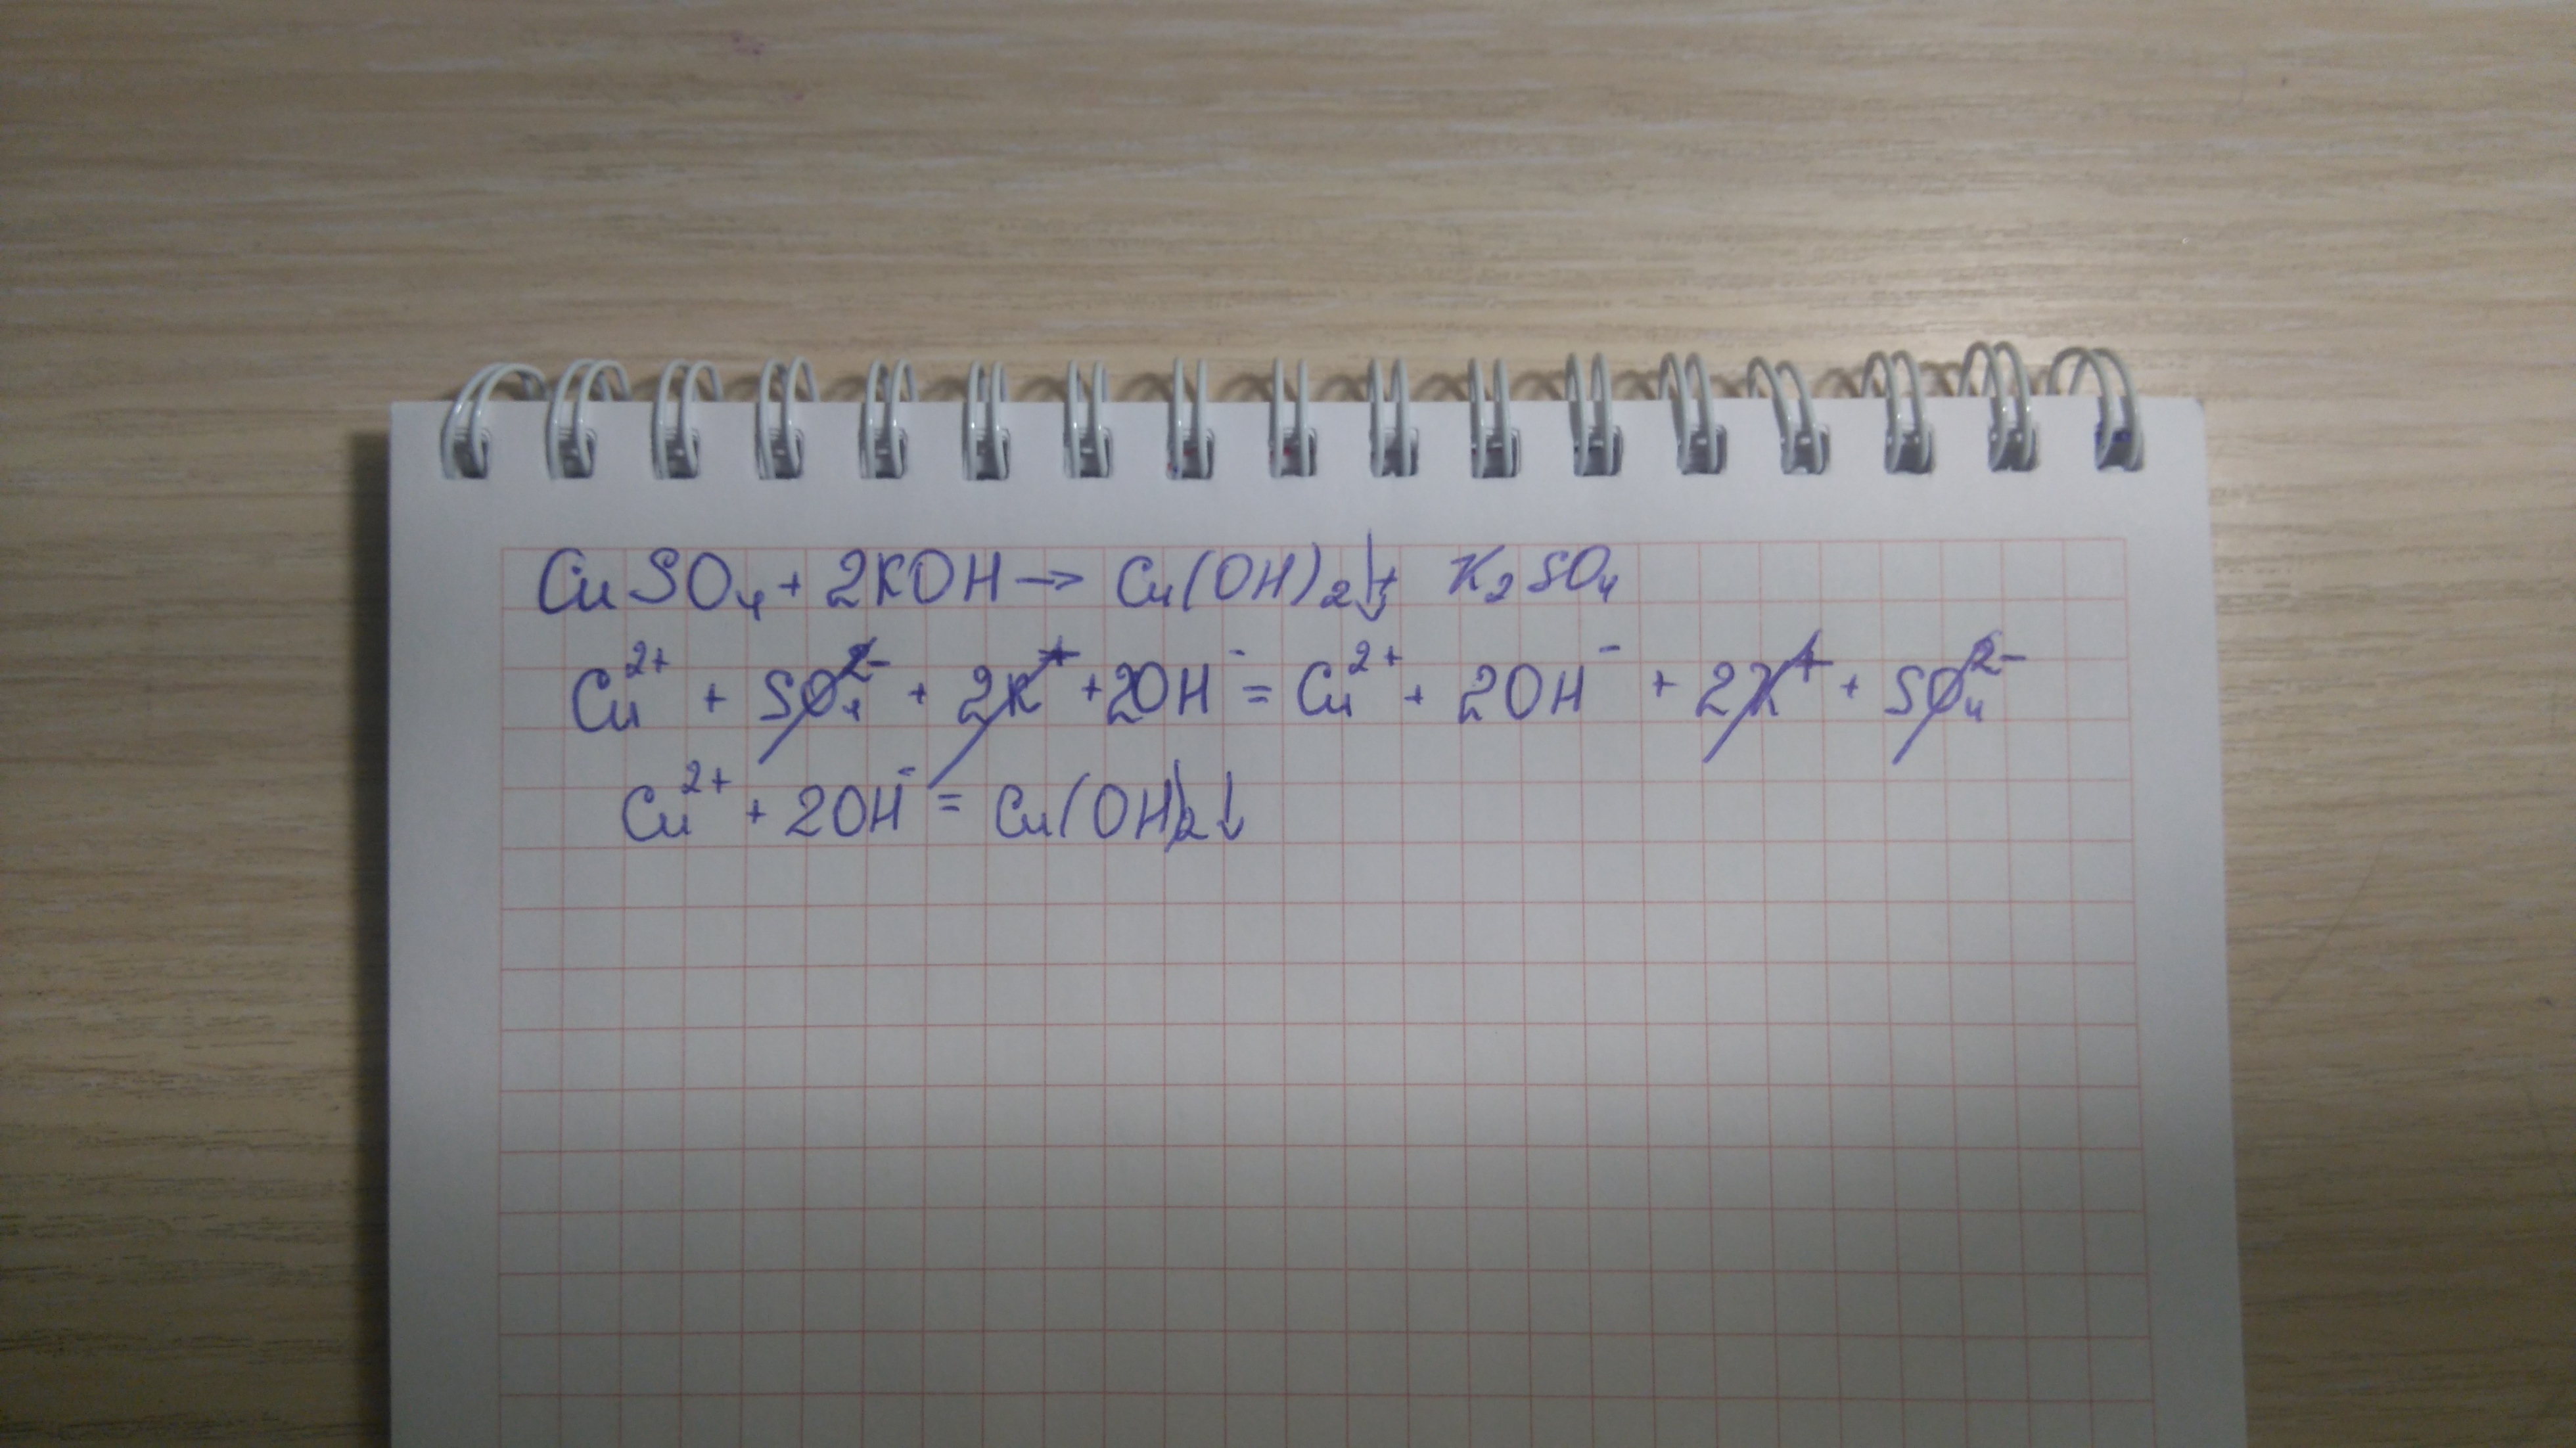 CuSO₄ + 2KOH → Cu(OH)₂↓ + K₂SO₄
Cu²⁺ + SO₄²⁻ + 2K⁺ + 2OH⁻ = Cu²⁺ + 2OH⁻ + 2K⁺ + SO₄²⁻
Cu²⁺ + 2OH⁻ = Cu(OH)₂↓